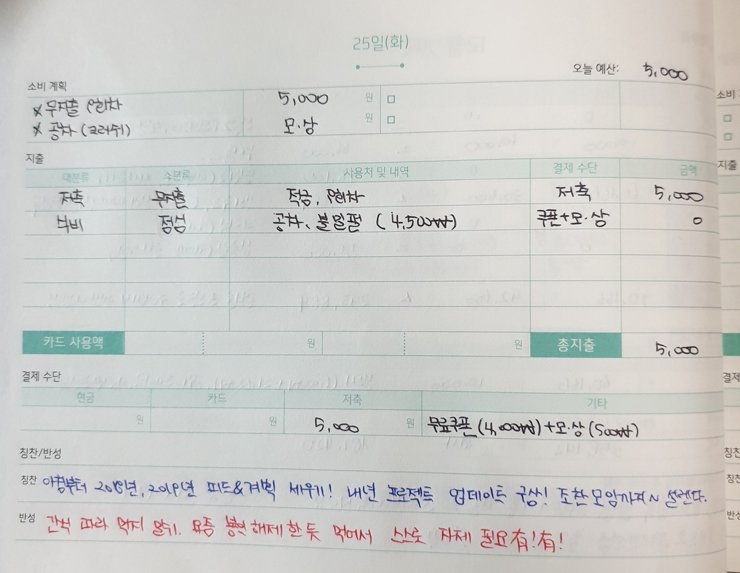 25일(화)
오늘 예산: 5,000
소비 계획
x 무지출 8회차 5,000 원
x 공차 (크러쉬) 모·상 원
지출
대분류 소분류 사용처 및 내역 결제 수단 금액
저축 무지출 적금, 8회차 저축 5,000
식비 점심 공차, 볼일펄 (4,500₩) 쿠폰+모·상 0
카드 사용액 원 원 총지출 5,000
결제 수단
현금 카드 저축 기타
원 원 5,000 원 무료쿠폰(4,000₩)+모·상(500₩)
칭찬/반성
칭찬 아침부터 2018년, 2019년 피드&계획 세우기! 내년 프로젝트 업데이트 구상! 조찬모임까지~ 설렌다.
반성 간식 따라 먹지 않기. 요즘 봉인해제한듯 먹어서 스스로 자제 필요有!有!
소비
지출
결제
칭찬
칭찬
반성